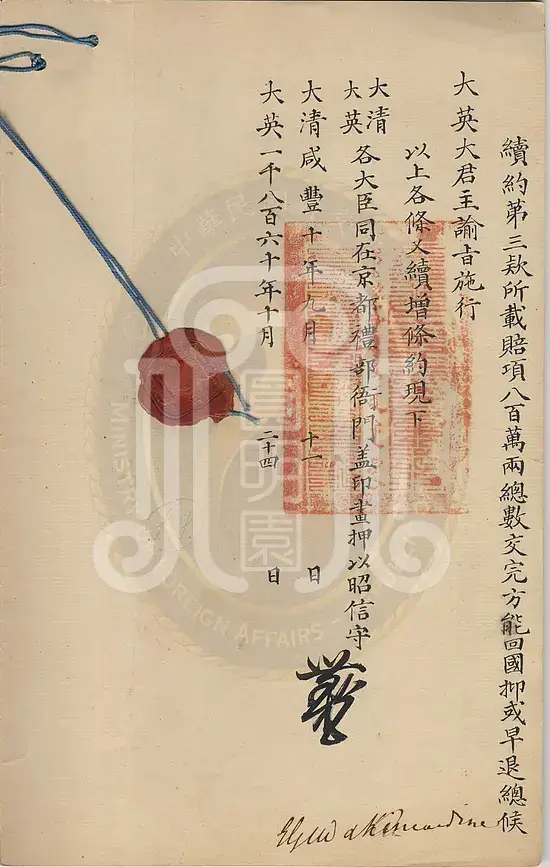 續約第三款所載賠項八百萬兩總數交完方能回國抑或早退總候
大英大君主諭旨施行
以上各條又續增條約現下
大清
大英
各大臣同在京都禮部衙門蓋印畫押以昭信守
大清咸豐十年九月十一日
大英一千八百六十年十月二十四日
Elgin & Kincardine
圓明園
中華民
MINISTR
FOREIGN AFFAIRS